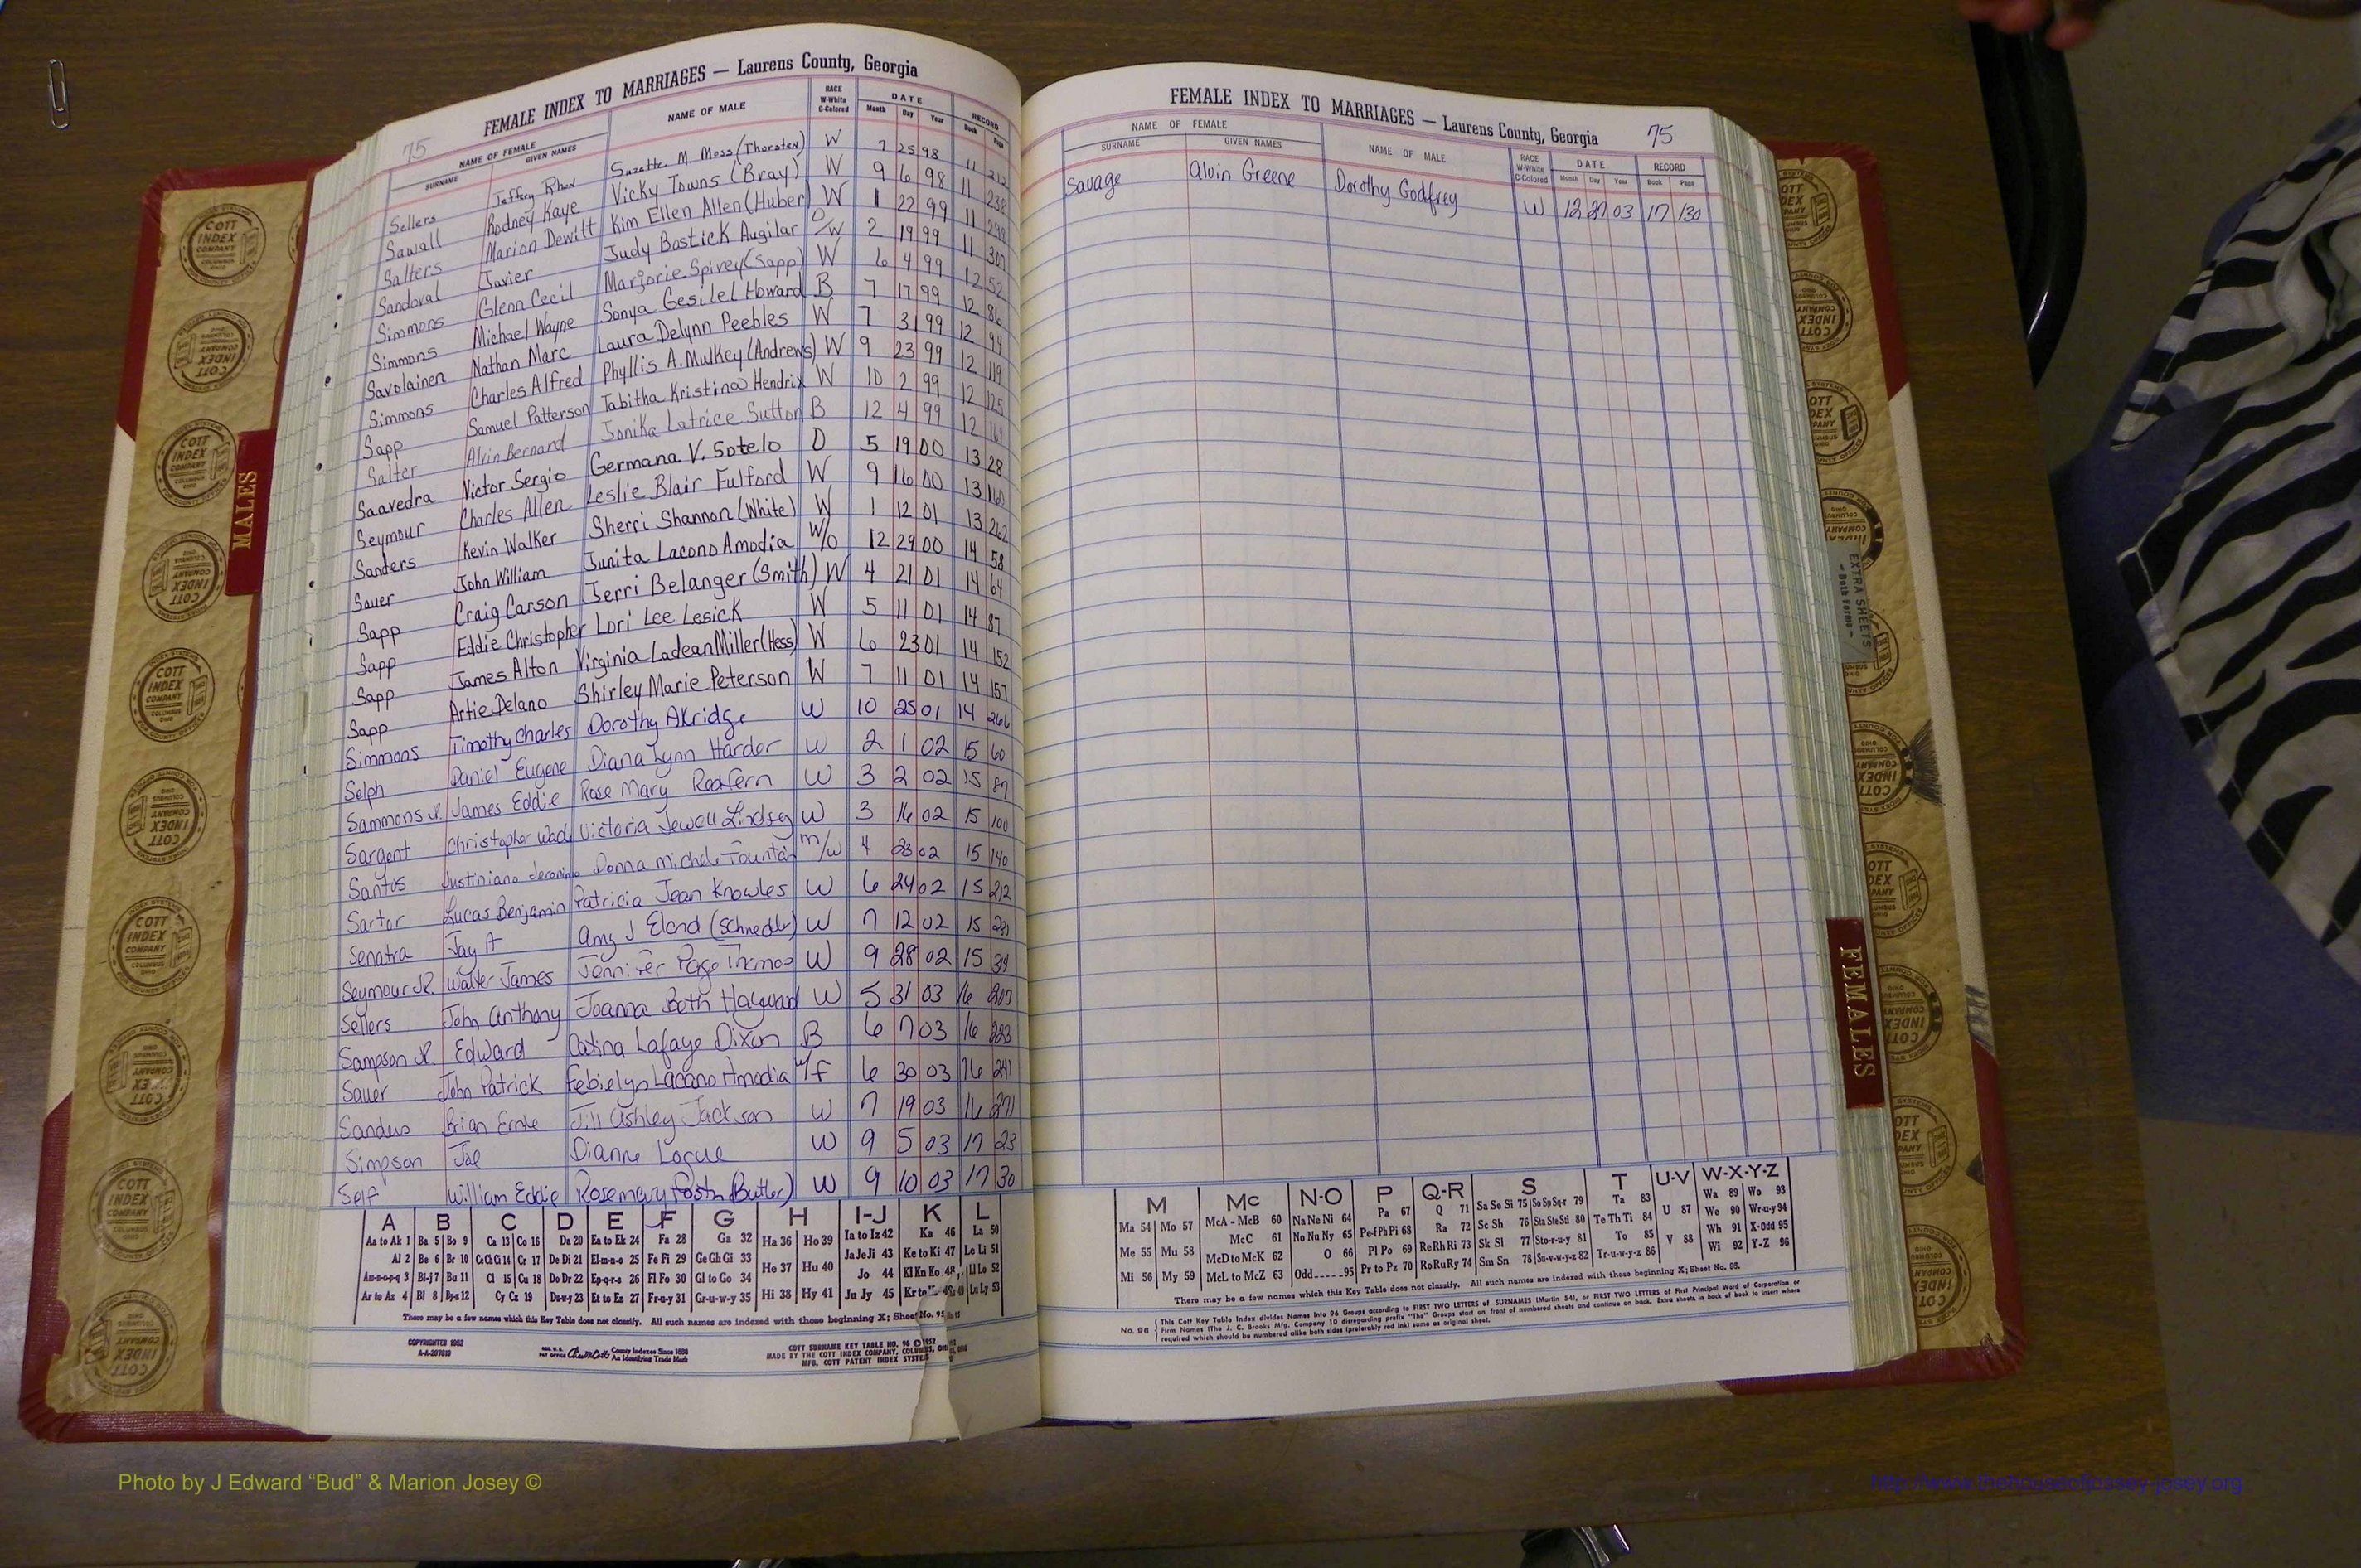 75
FEMALE INDEX TO MARRIAGES — Laurens County, Georgia
NAME OF FEMALE NAME OF MALE RACE DATE RECORD
SURNAME GIVEN NAMES W-White C-Colored Month Day Year Book Page
Sellers Jeffery Suzette M. Moss (Thorsten) W 7 25 98 11 212
Sawall Rodney Kaye Vicky Towns (Bray) W 9 6 98 11 238
Salters Marion Dewitt Kim Ellen Allen (Huber) W 1 22 99 11 298
Sandoval Javier Judy Bostick Augilar O/W 2 19 99 11 307
Simmons Glenn Cecil Marjorie Spivey (Sapp) W 6 4 99 12 52
Simmons Michael Wayne Sonya Gesilel Howard B 7 17 99 12 86
Savolainen Nathan Marc Laura Delynn Peebles W 7 31 99 12 99
Simmons Charles Alfred Phyllis A. Mulkey (Andrews) W 9 23 99 12 119
Sapp Samuel Patterson Tabitha Kristina Hendrix W 10 2 99 12 125
Salter Alvin Bernard Jonika Latrice Sutton B 12 4 99 12 169
Saavedra Victor Sergio Germana V. Sotelo O 5 19 00 13 28
Seymour Charles Allen Leslie Blair Fulford W 9 16 00 13 160
Sanders Kevin Walker Sherri Shannon (White) W 1 12 01 13 262
Sauer John William Junita Lacono Amodia W/O 12 29 00 14 58
Sapp Craig Carson Jerri Belanger (Smith) W 4 21 01 14 64
Sapp Eddie Christopher Lori Lee Lesick W 5 11 01 14 87
Sapp James Alton Virginia Ladean Miller (Hess) W 6 23 01 14 152
Sapp Artie Delano Shirley Marie Peterson W 7 11 01 14 157
Simmons Timothy Charles Dorothy Akridge W 10 25 01 14 266
Selph Daniel Eugene Diana Lynn Harder W 2 1 02 15 60
Sammons Jr. James Eddie Rose Mary Redfern W 3 2 02 15 87
Sargent Christopher Wade Victoria Jewell Lindsey W 3 16 02 15 100
Santos Justiniano Jeronimo Donna Michele Fountain M/W 4 28 02 15 140
Sartor Lucas Benjamin Patricia Jean Knowles W 6 24 02 15 212
Senatra Jay A Amy J Elord (Schnedler) W 7 12 02 15
Seymour Jr. Walter James Jennifer Page Thomas W 9 28 02 15
Sellers John Anthony Joanna Beth Hayward W 5 31 03 16 207
Sampson Jr. Edward Catina Lafaye Dixon B 6 7 03 16 223
Sauer John Patrick Febielyn Lacano Amodia W/F 6 30 03 16 241
Sanders Brian Ernie Jill Ashley Jackson W 7 19 03 16 271
Simpson Joe Dianne Logue W 9 5 03 17 23
Self William Eddie Rosemary Poston (Butler) W 9 10 03 17 30
A B C D E F G H I-J K L
Aa to Ak 1 Ba 5 Bo 9 Ca 13 Co 16 Da 20 Ea to Ek 24 Fa 28 Ga 32 Ha 36 Ho 39 Ia to Iz 42 Ka 46 La 50
Al 2 Be 6 Br 10 Ce Ch Gi 14 Cr 17 De Di 21 El-m-n-o 25 Fe Fi 29 Ge Gh Gi 33 He 37 Hu 40 Ja Je Ji 43 Ke to Ki 47 Le Li 51
Am-n-o-p-q 3 Bi-j 7 Bu 11 Cl 15 Cu 18 Do Dr 22 Ep-q-r-s 26 Fl Fo 30 Gl to Go 34 Jo 44 Kl Kn Ko 48 Ll Lo 52
Ar to Az 4 Bl 8 By-z 12 Cy Cz 19 Du-w-y 23 Et to Ez 27 Fr-u-y 31 Gr-u-w-y 35 Hi 38 Hy 41 Ju Jy 45 Lu Ly 53
There may be a few names which this Key Table does not classify. All such names are indexed with those beginning X; Sheet No. 95
COPYRIGHTED 1952
A-A-207610
REG. U.S. PAT OFFICE County Indexes Since 1888 An Identifying Trade Mark
COTT SURNAME KEY TABLE NO. 96 © 1952
MADE BY THE COTT INDEX COMPANY, COLUMBUS, OHIO
MFG. COTT PATENT INDEX SYSTEM
FEMALE INDEX TO MARRIAGES — Laurens County, Georgia 75
NAME OF FEMALE NAME OF MALE RACE DATE RECORD
SURNAME GIVEN NAMES W-White C-Colored Month Day Year Book Page
Savage Alvin Greene Dorothy Godfrey W 12 27 03 17 130
M Mc N-O P Q-R S T U-V W-X-Y-Z
Ma 54 Mo 57 McA - McB 60 Na Ne Ni 64 Pa 67 Q 71 Sa Se Si 75 So Sp Sq-r 79 Ta 83 U 87 Wa 89 Wo 93
Me 55 Mu 58 McC 61 No Nu Ny 65 Pe-f Ph Pi 68 Ra 72 Sc Sh 76 Sta Ste Sti 80 Te Th Ti 84 We 90 Wr-u-y 94
McD to McK 62 O 66 Pl Po 69 Re Rh Ri 73 Sk Sl 77 Sto-r-u-y 81 To 85 V 88 Wh 91 X-Odd 95
Mi 56 My 59 McL to McZ 63 Odd-----95 Pr to Pz 70 Ro Ru Ry 74 Sm Sn 78 Su-v-w-y-z 82 Tr-u-w-y-z 86 Wi 92 Y-Z 96
There may be a few names which this Key Table does not classify. All such names are indexed with those beginning X; Sheet No. 95.
No. 96 This Cott Key Table Index divides Names into 96 Groups according to FIRST TWO LETTERS of SURNAMES (Martin 54), or FIRST TWO LETTERS of First Principal Word of Corporation or
Firm Names (The J. C. Brooks Mfg. Company 10 disregarding prefix "The" Groups start on front of numbered sheets and continue on back. Extra sheets in back of book to insert where
required which should be numbered alike both sides (preferably red ink) same as original sheet.
MALES
FEMALES
EXTRA SHEETS
— Both Forms —
COTT INDEX COMPANY COLUMBUS OHIO
Photo by J Edward “Bud” & Marion Josey ©
http://www.thehouseofjossey-josey.org